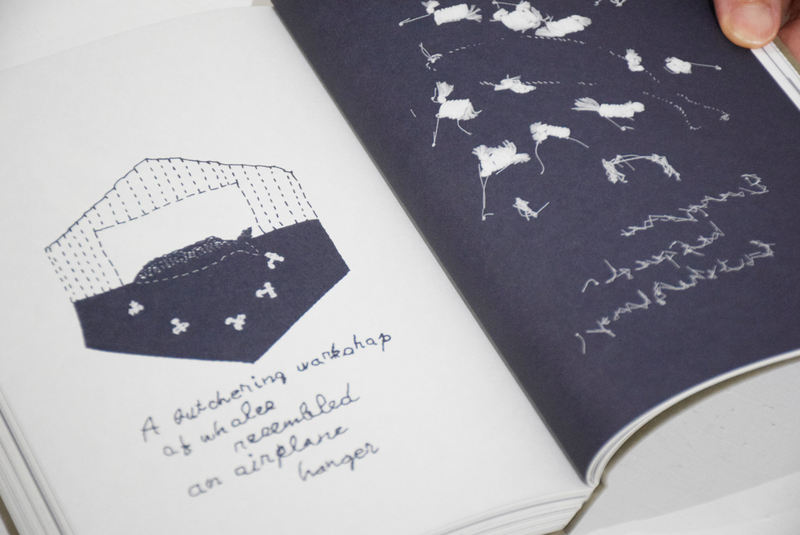 A butchering workshop
of whales
resembled
an airplane
hanger